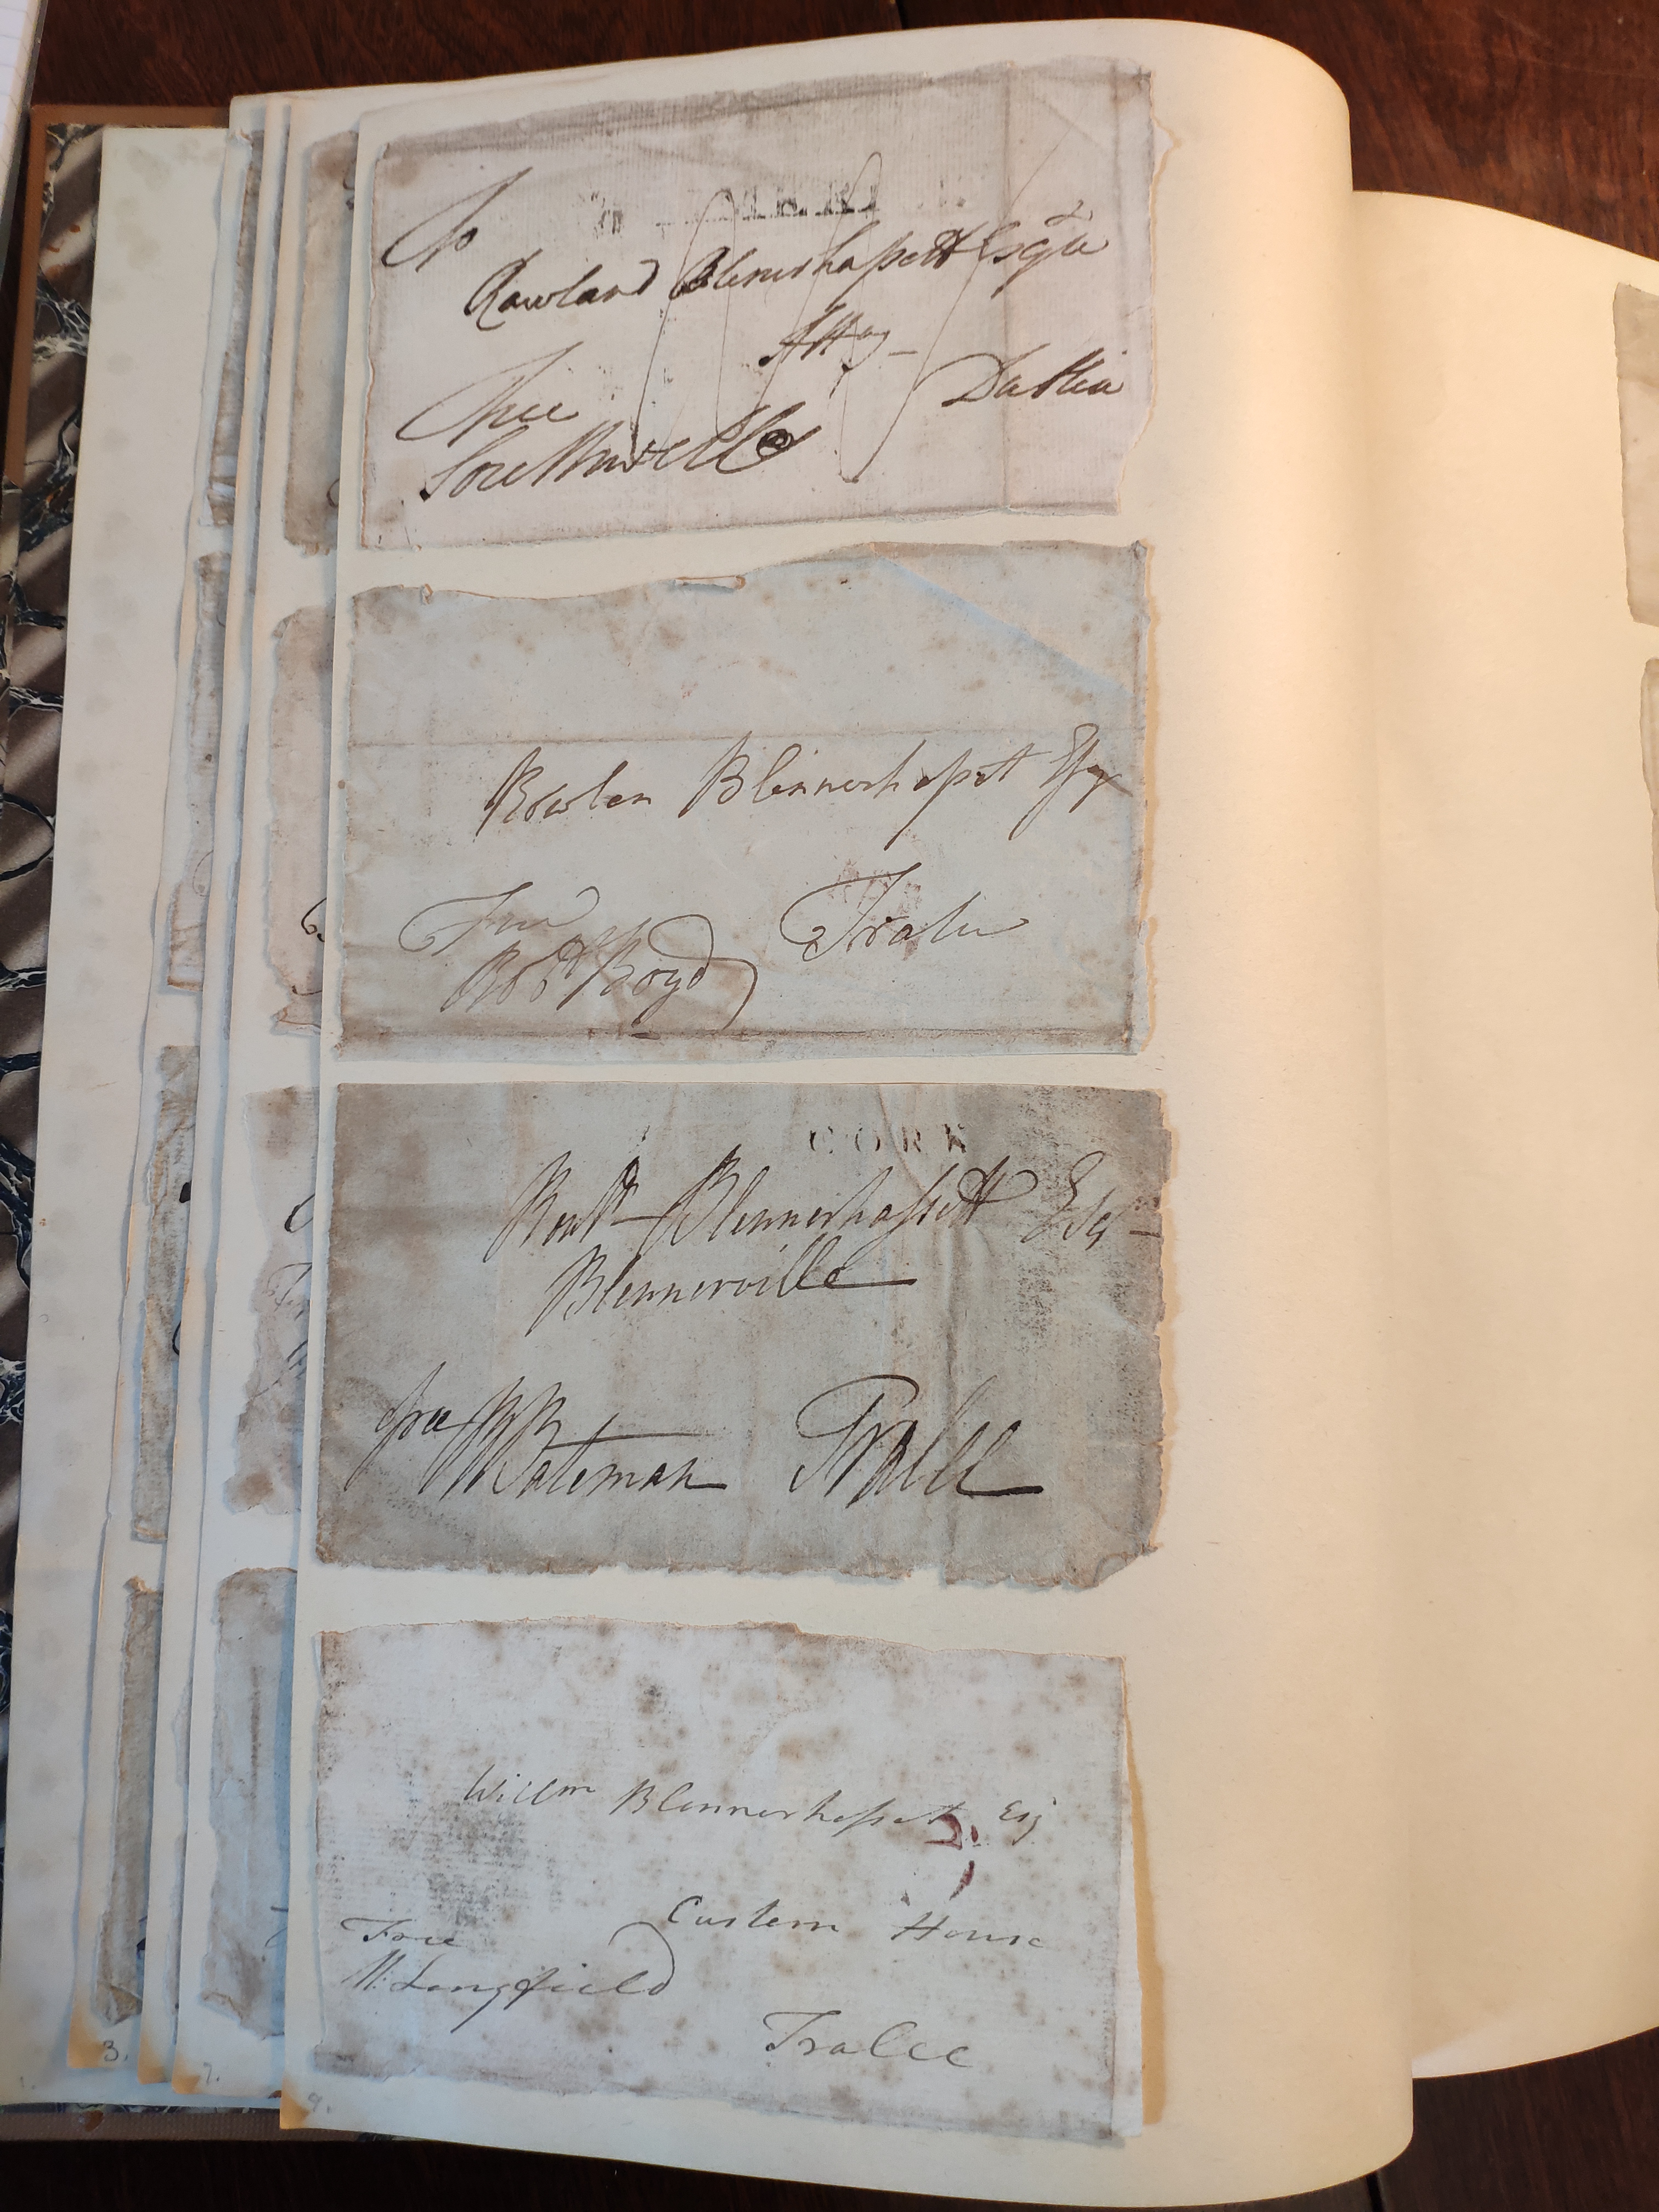 To
Rowland Blennerhassett Esqr
Atty
Dublin
Free
Southwell
Rowlan Blennerhasset Esqr
Tralee
Free
Robt Boyd
CORK
Robt Blennerhassett Esq
Blennerville
free
Bateman
Tralee
Willm Blennerhasset Esq
Custem House
Free
M: Longfield
Tralee
3.
7.
9.